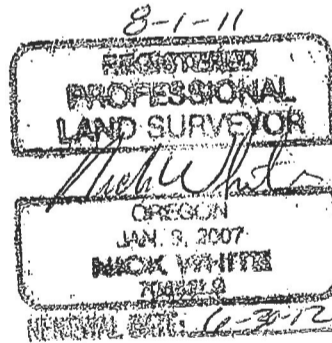 8-1-11
REGISTERED
PROFESSIONAL
LAND SURVEYOR
Nick White
OREGON
JAN. 9, 2007
NICK WHITE
RENEWAL DATE: 6-30-12